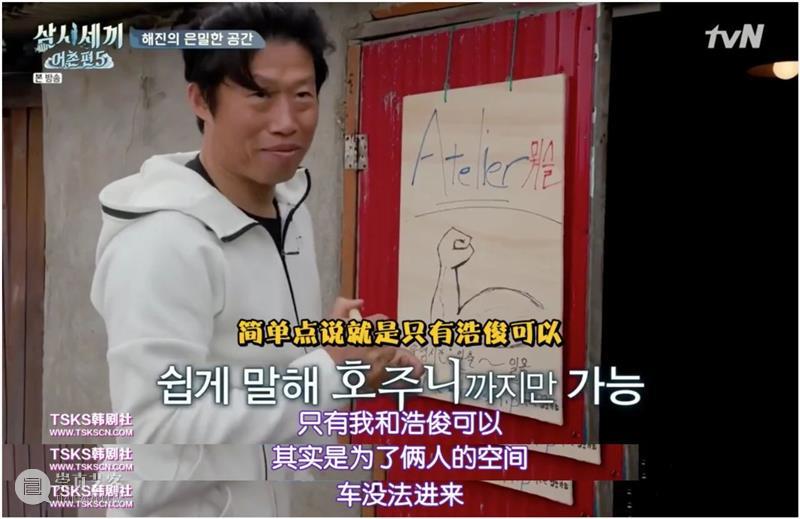 삼시세끼
어촌편5
본 방송
해진의 은밀한 공간
tvN
Atelier 뭐슬
简单点说就是只有浩俊可以
쉽게 말해 호주니까지만 가능
TSKS韩剧社
WWW.TSKSCN.COM
只有我和浩俊可以
TSKS韩剧社
WWW.TSKSCN.COM
其实是为了俩人的空间
TSKS韩剧社
WWW.TSKSCN.COM
车没法进来